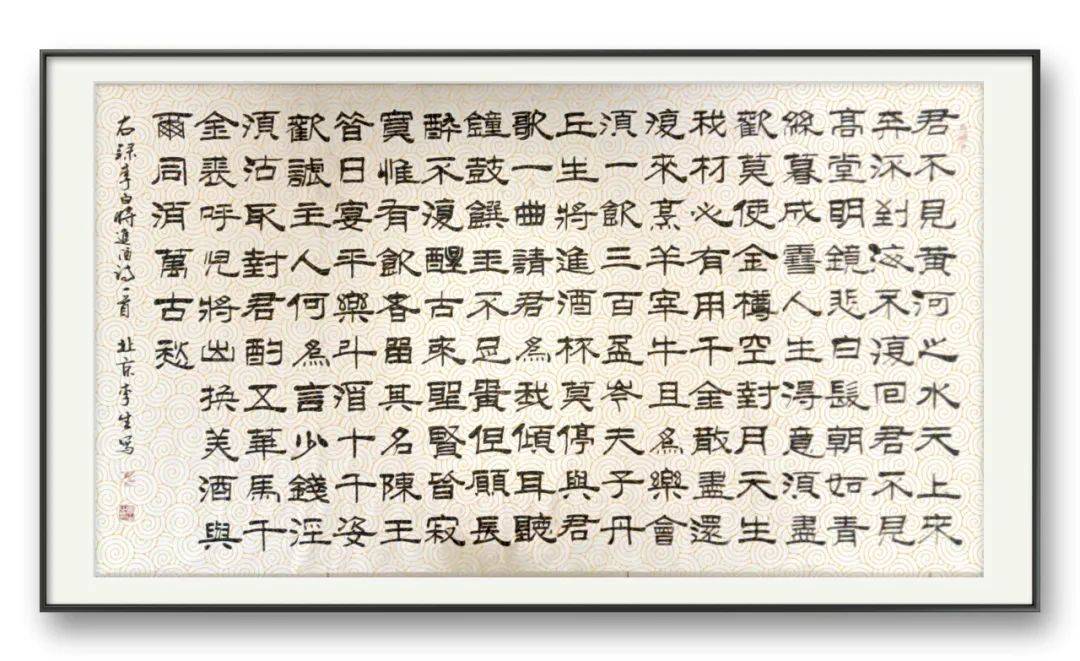 君不見黃河之水天上來
奔流到海不復回君不見
高堂明鏡悲白髮朝如青
絲暮成雪人生得意須盡
歡莫使金樽空對月天生
我材必有用千金散盡還
復來烹羊宰牛且為樂會
須一飲三百盃岑夫子丹
丘生將進酒杯莫停與君
歌一曲請君為我傾耳聽
鐘鼓饌玉不足貴但願長
醉不復醒古來聖賢皆寂
寞惟有飲者留其名陳王
昔日宴平樂斗酒十千姿
歡謔主人何為言少錢涇
須沽取對君酌五華馬千
金裘呼兒將出換美酒與
爾同消萬古愁
右録李白將進酒詩一首 北京李生寫